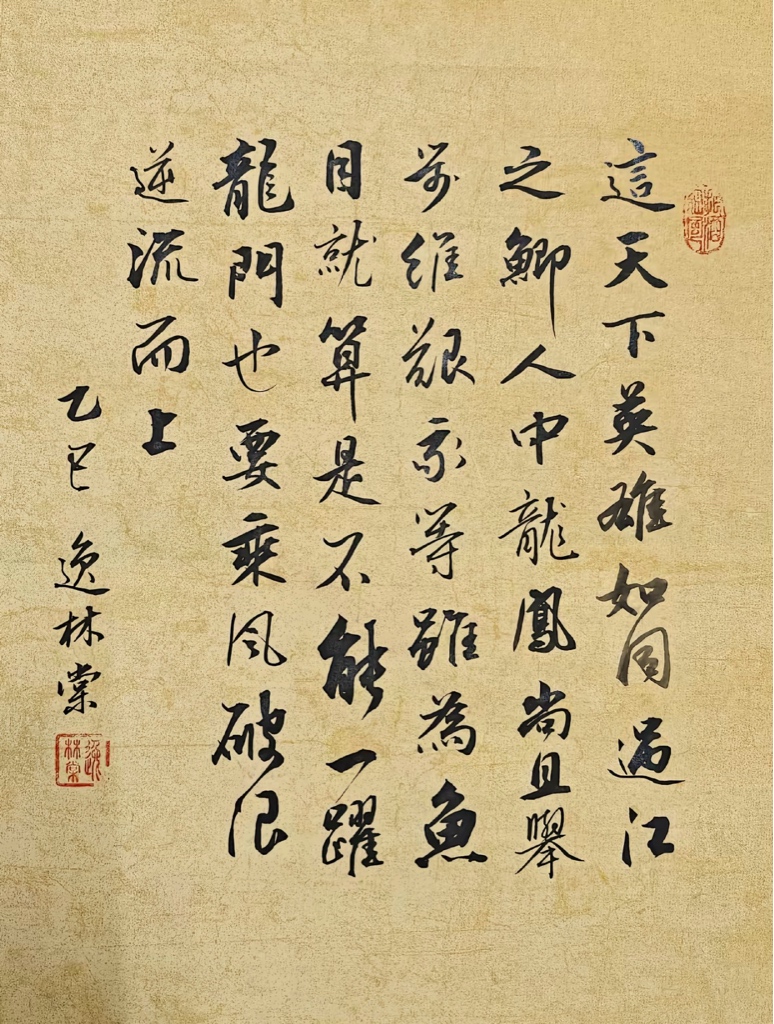 這天下英雄如同過江
之鯽人中龍鳳尚且舉
步維艱我等雖為魚
目就算是不能一躍
龍門也要乘風破浪
逆流而上
乙巳 逸林棠
逸林棠